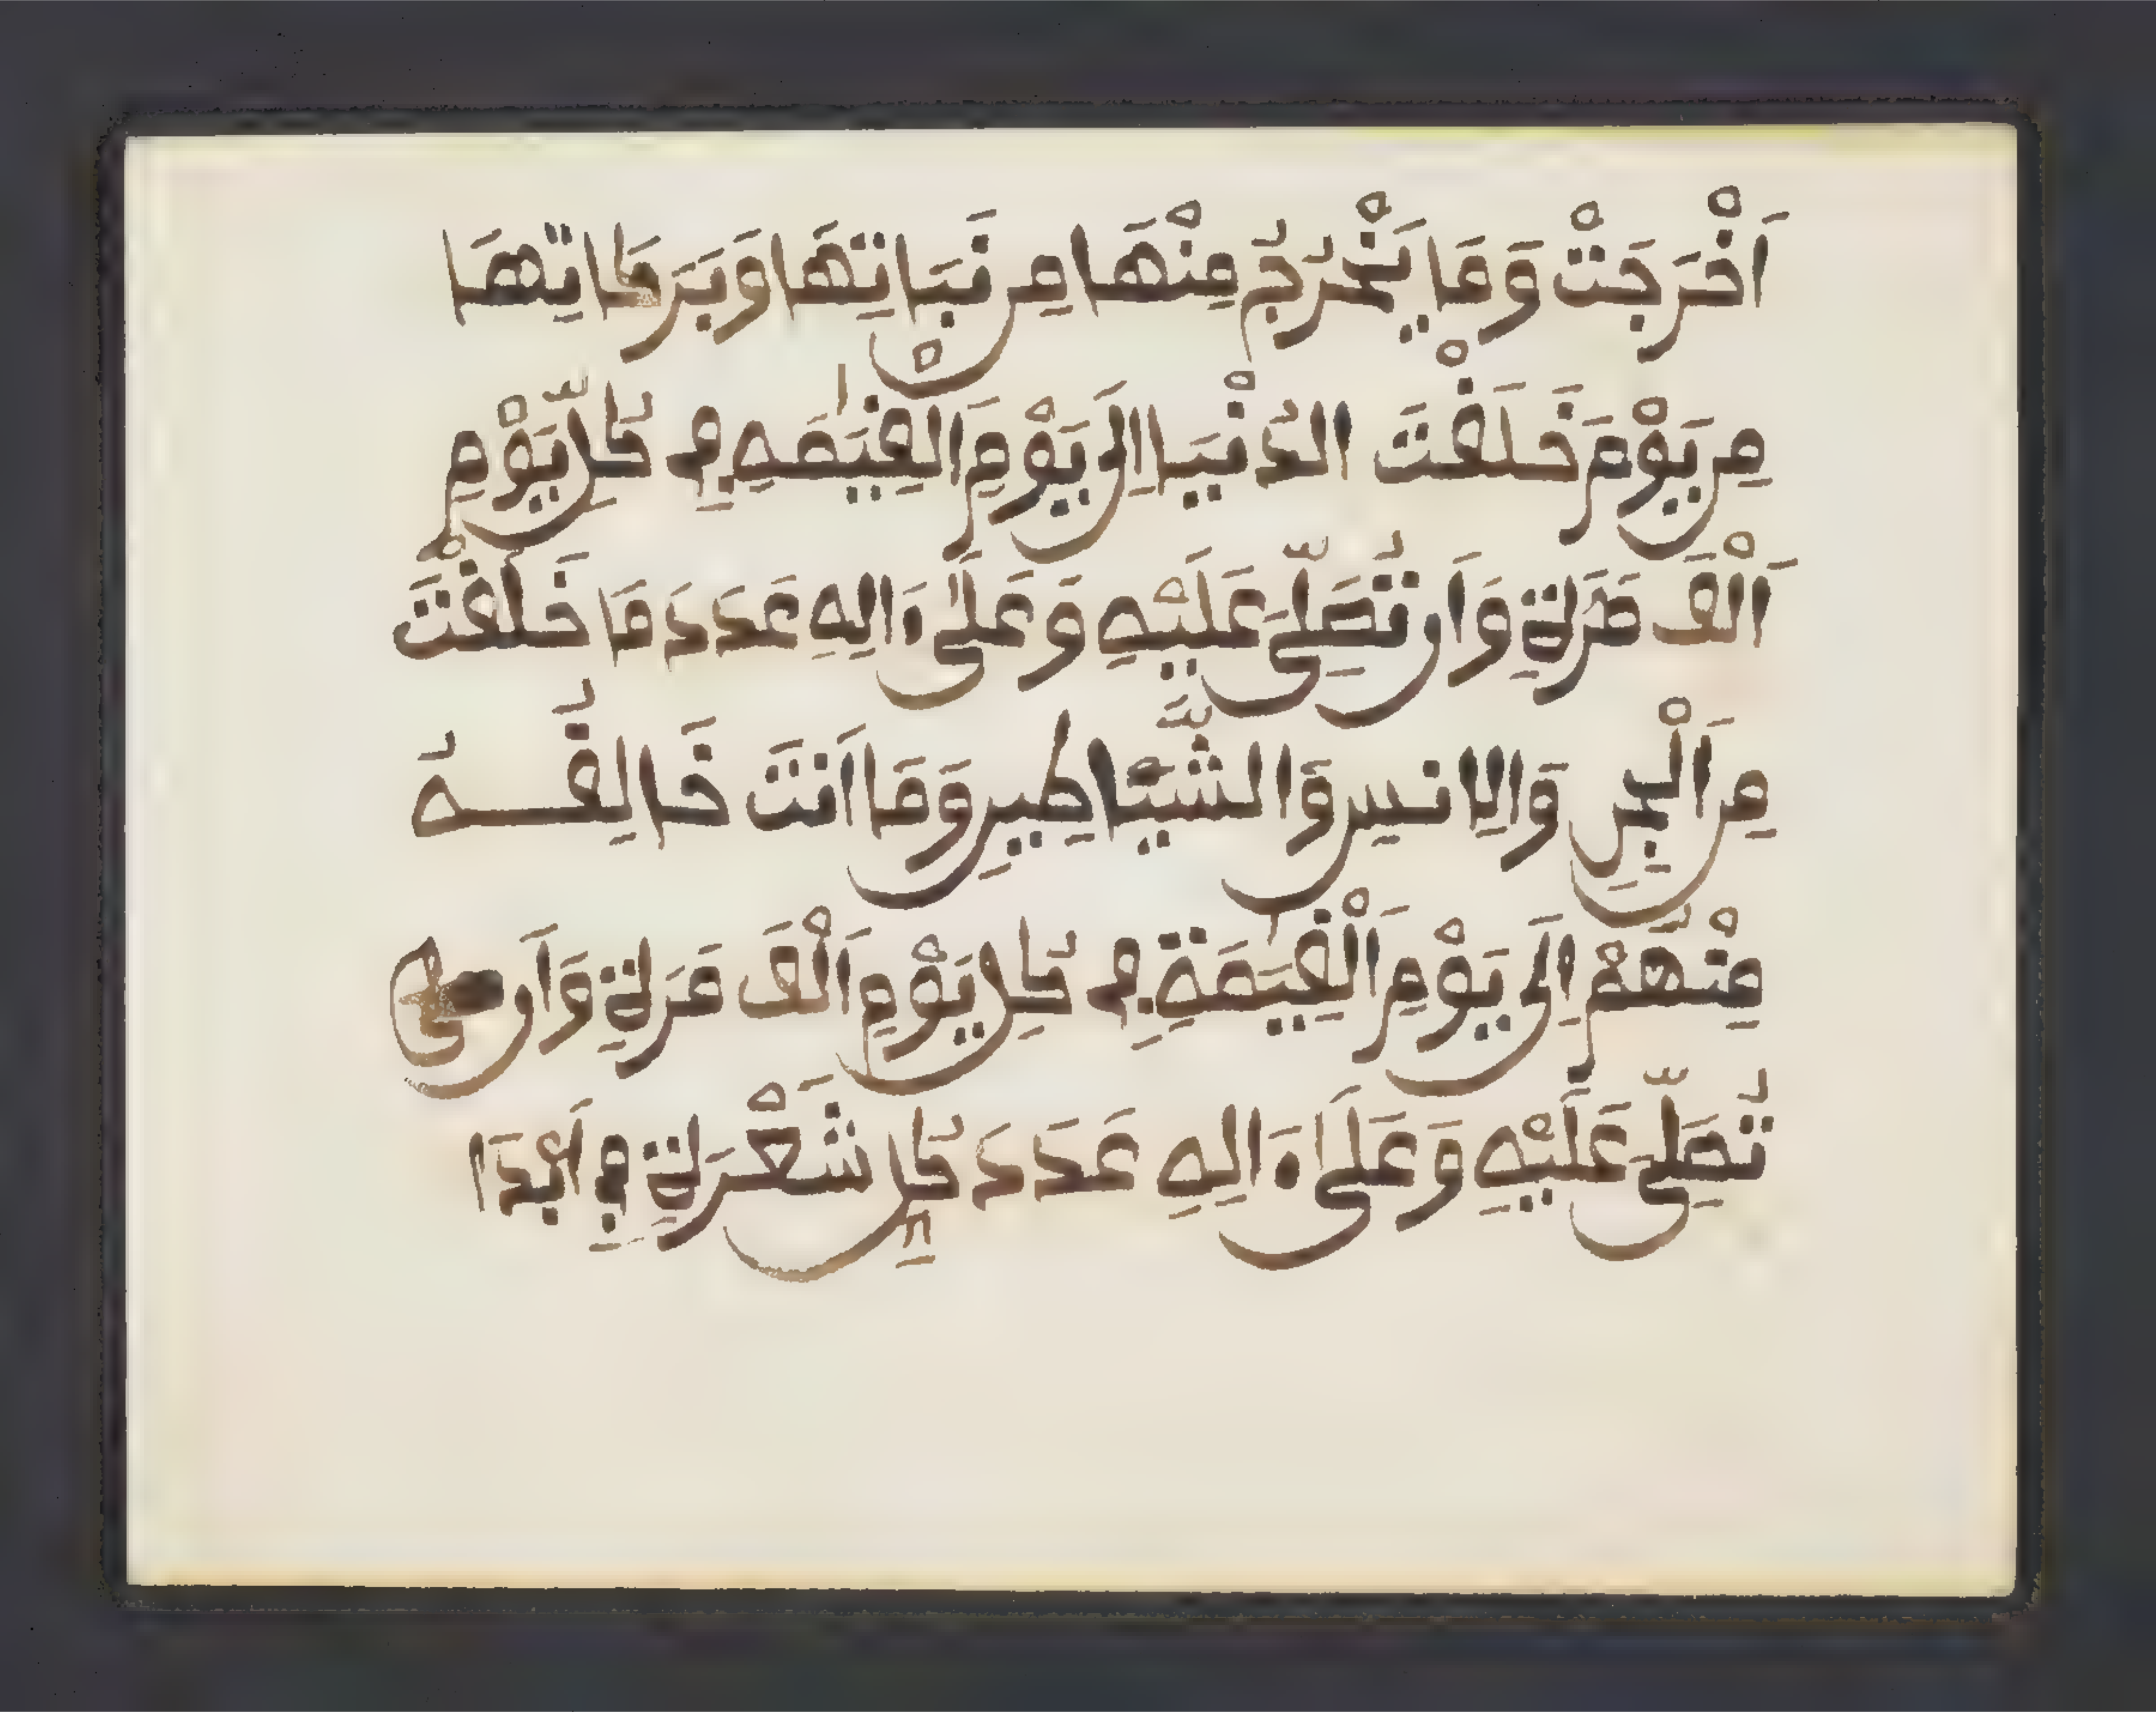 اَخْرَجَتْ وَمَا يَخْرُجُ مِنْهَا مِن نَبَاتِهَا وَبَرَكَاتِهَا
مِن يَوْمَ خَلَقْتَ الدُنْيَا اِلَى يَوْمِ الْقِيَٰمَهِ فِي كُلِّ يَوْمٍ
اَلْفَ مَرَةٍ وَاَن تُصَلِّيَ عَلَيْهِ وَعَلَىٰ ءَالِهِ عَدَدَ مَا خَلَقْتَ
مِنَ الْجِنِّ وَالِانسِ وَالشَّيَاطِينِ وَمَا اَنتَ خَالِقُهُ
مِنْهُمْ اِلَى يَوْمِ اَلْقِيَٰمَةِ فِي كُلِّ يَوْمٍ اَلْفَ مَرَةٍ وَاَن
تُصَلِّيَ عَلَيْهِ وَعَلَىٰ ءَالِهِ عَدَدَ كُلِّ شَعْرَةٍ فِي اَبْدَا